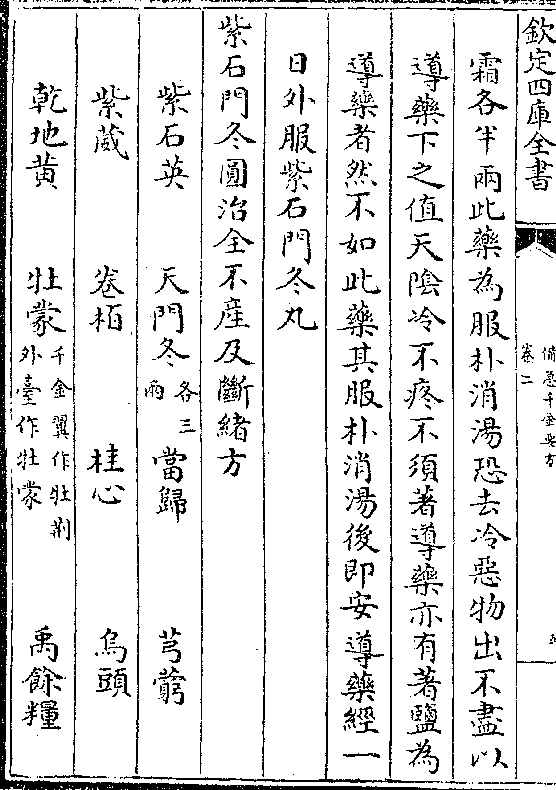 欽定四庫全書
備急千金要方
卷二
五
霜各半兩此藥為服朴消湯恐去冷惡物出不盡以
導藥下之值天陰冷不疼不須著導藥亦有著鹽為
導藥者然不如此藥其服朴消湯後即安導藥經一
日外服紫石門冬丸
紫石門冬圓治全不產及斷緒方
紫石英 天門冬各三兩 當歸 芎藭
紫葳 卷栢 桂心 烏頭
乾地黃 牡蒙千金翼作牡荆外臺作牡蒙 禹餘糧